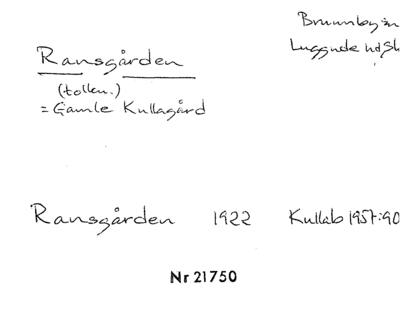 Ransgården
Brunnby sn
Luggude hd Sk
(tolkn.)
= Gamle Kullagård
Ransgården 1922 Kullab 1957:90
Nr 21750